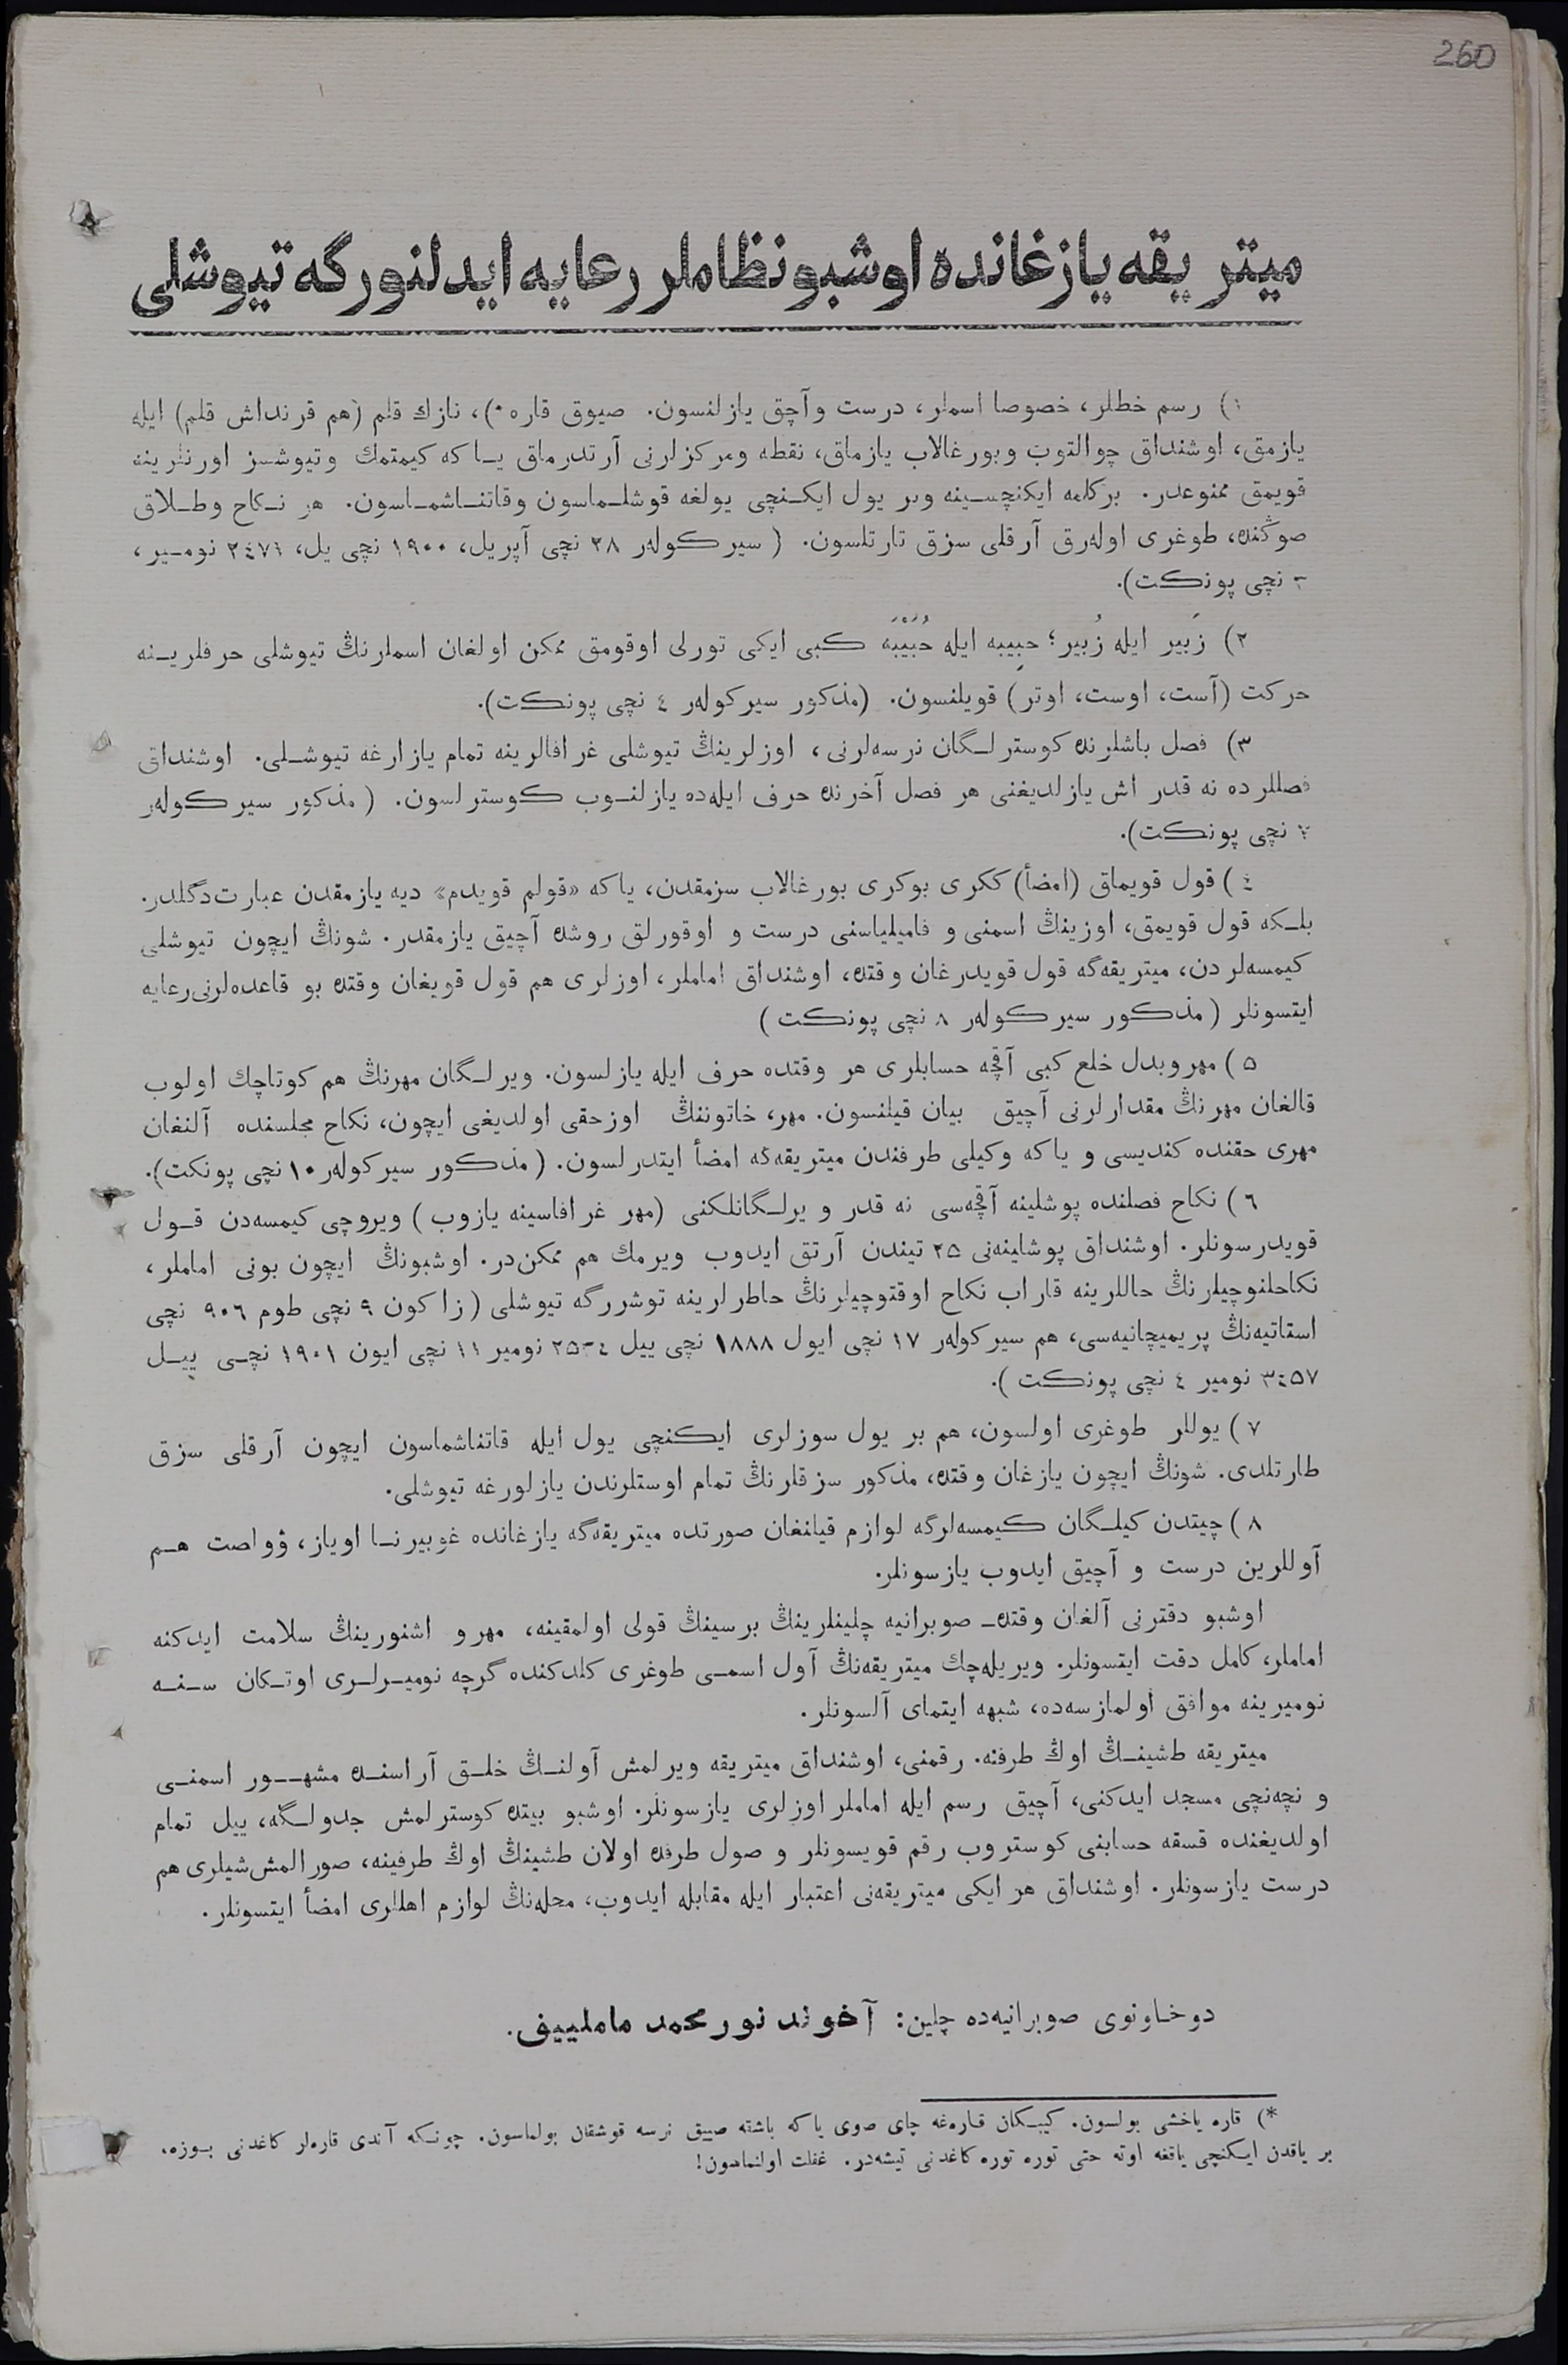 260
ميتريقه يازغانده اوشبو نظاملر رعايه ايدلنورگه تيوشلى
١) رسم خطلر، خصوصا اسملر، درست وآچق يازلنسون. صيوق قاره*)، نازك قلم (هم قرنداش قلم) ايله
يازمق، اوشنداق چوالتوب وبورغالاب يازماق، نقطه ومركزلرنى آرتدرماق يا كه كيمتمك وتيوشسز اورنلرينه
قويمق ممنوعدر. بركلمه ايكنچسينه وبر يول ايكنچى يولغه قوشلماسون وقاتناشماسون. هر نكاح وطلاق
صوڭنده، طوغرى اولەرق آرقلى سزق تارتلسون. (سيركولەر ٢٨ نچى آپريل، ١٩٠٠ نچى يل، ٢٤٧١ نومير،
نچى پونكت).
٢) زَبير ايله زُبير؛ حبِيبه ايله حُبَيْبَه كبى ايكى تورلى اوقومق ممكن اولغان اسملرنڭ تيوشلى حرفلرينه
حركت (آست، اوست، اوتر) قويلنسون. (مذكور سيركولەر ٤ نچى پونكت).
٣) فصل باشلرنده كوسترلگان نرسەلرنى، اوزلرينڭ تيوشلى غرافالرينه تمام يازارغه تيوشلى. اوشنداق
فصللرده نه قدر اش يازلديغنى هر فصل آخرنده حرف ايلەده يازلنوب كوسترلسون. (مذكور سيركولەر
نچى پونكت).
٤) قول قويماق (امضأ) ككرى بوكرى بورغالاب سزمقدن، ياكه «قولم قويدم» ديه يازمقدن عبارت دگلدر.
بلكه قول قويمق، اوزينڭ اسمنى و فاميلياسنى درست و اوقورلق روشده آچيق يازمقدر. شونڭ ايچون تيوشلى
كيمسەلردن، ميتريقەگه قول قويدرغان وقتده، اوشنداق اماملر، اوزلرى هم قول قويغان وقتده بو قاعدەلرنى رعايه
ايتسونلر (مذكور سيركولەر ٨ نچى پونكت)
٥) مهر وبدل خلع كبى آقچه حسابلرى هر وقتده حرف ايله يازلسون. ويرلگان مهرنڭ هم كوتاچك اولوب
قالغان مهرنڭ مقدارلرنى آچيق بيان قيلنسون. مهر، خاتوننڭ اوزحقى اولديغى ايچون، نكاح مجلسنده آلنغان
مهرى حقنده كنديسى و ياكه وكيلى طرفندن ميتريقەگه امضأ ايتدرلسون. (مذكور سيركولەر ١٠ نچى پونكت).
٦) نكاح فصلنده پوشلينه آقچەسى نه قدر ويرلگانلكنى (مهر غرافاسينه يازوب) ويروچى كيمسەدن قول
قويدرسونلر. اوشنداق پوشلينەنى ٢٥ تيندن آرتق ايدوب ويرمك هم ممكن‌در. اوشبونڭ ايچون بونى اماملر،
نكاحلنوچيلرنڭ حاللرينه قاراب نكاح اوقتوچيلرنڭ خاطرلرينه توشررگه تيوشلى (زاكون ٩ نچى طوم ٩٠٦ نچى
استاتيەنڭ پريميچانيەسى، هم سيركولەر ١٧ نچى ايول ١٨٨٨ نچى ييل نومير ١١ نچى ايون ١٩٠١ نچى ييل
٣٤٥٧ نومير ٤ نچى پونكت).
٧) يوللر طوغرى اولسون، هم بر يول سوزلرى ايكنچى يول ايله قاتناشماسون ايچون آرقلى سزق
طارتلدى. شونڭ ايچون يازغان وقتده، مذكور سزقلرنڭ تمام اوستلرندن يازلورغه تيوشلى.
٨) چيتدن كيلگان كيمسەلرگه لوازم قيلنغان صورتده ميتريقەگه يازغانده غوبيرنا اوياز، ۋواصت هم
آوللرين درست و آچيق ايدوب يازسونلر.
اوشبو دفترنى آلغان وقتده صوبرانيه چلينلرينڭ برسينڭ قولى اولمقينه، مهر و اشنورينڭ سلامت ايدكنه
اماملر، كامل دقت ايتسونلر. ويريلەچك ميتريقەنڭ آول اسمى طوغرى كلدكنده گرچه نوميرلرى اوتكان سنه
نوميرينه موافق اولمازسەده، شبهه ايتماى آلسونلر.
ميتريقه طشينڭ اوڭ طرفنه. رقمنى، اوشنداق ميتريقه ويرلمش آولنڭ خلق آراسنده مشهور اسمنى
و نچەنچى مسجد ايدكنى، آچيق رسم ايله اماملر اوزلرى يازسونلر. اوشبو بيتده كوسترلمش جدولگه، ييل تمام
اولديغنده قسقه حسابنى كوستروب رقم قويسونلر و صول طرفده اولان طشينڭ اوڭ طرفينه، صورالمش شيلرى هم
درست يازسونلر. اوشنداق هر ايكى ميتريقەنى اعتبار ايله مقابله ايدوب، محلەنڭ لوازم اهللرى امضأ ايتسونلر.
دوخاونوى صوبرانيەده چلين: آخوند نورمحمد ماملييف.
*) قاره ياخشى بولسون. كيبكان قارەغه چاى صوى ياكه باشقه صييق نرسه قوشقان بولماسون. چونكه آندى قارەلر كاغدنى بوزه،
بر ياقدن ايكنچى ياققه اوته حتى توره توره كاغدنى تيشەدر. غفلت اولنماسون!